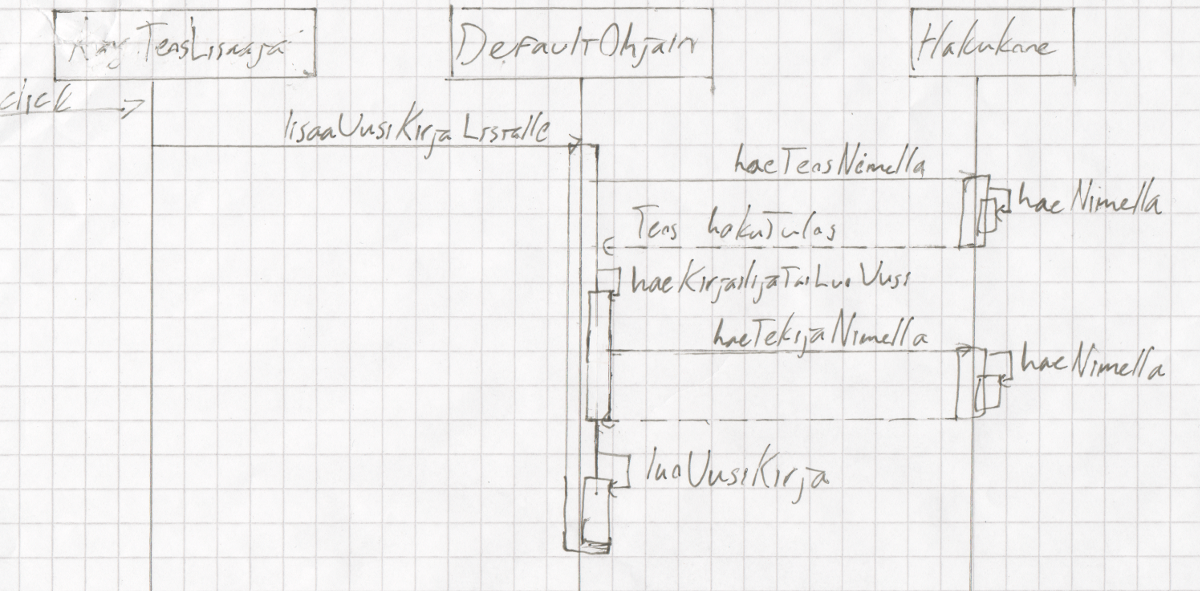 TeosLisaaja
DefaultOhjain
Hakukone
click
lisaaUusiKirjaListalle
haeTeosNimella
haeNimella
Teos hakuTulos
haeKirjailijaTaiLuoUusi
haeTekijaNimella
haeNimella
luoUusiKirja